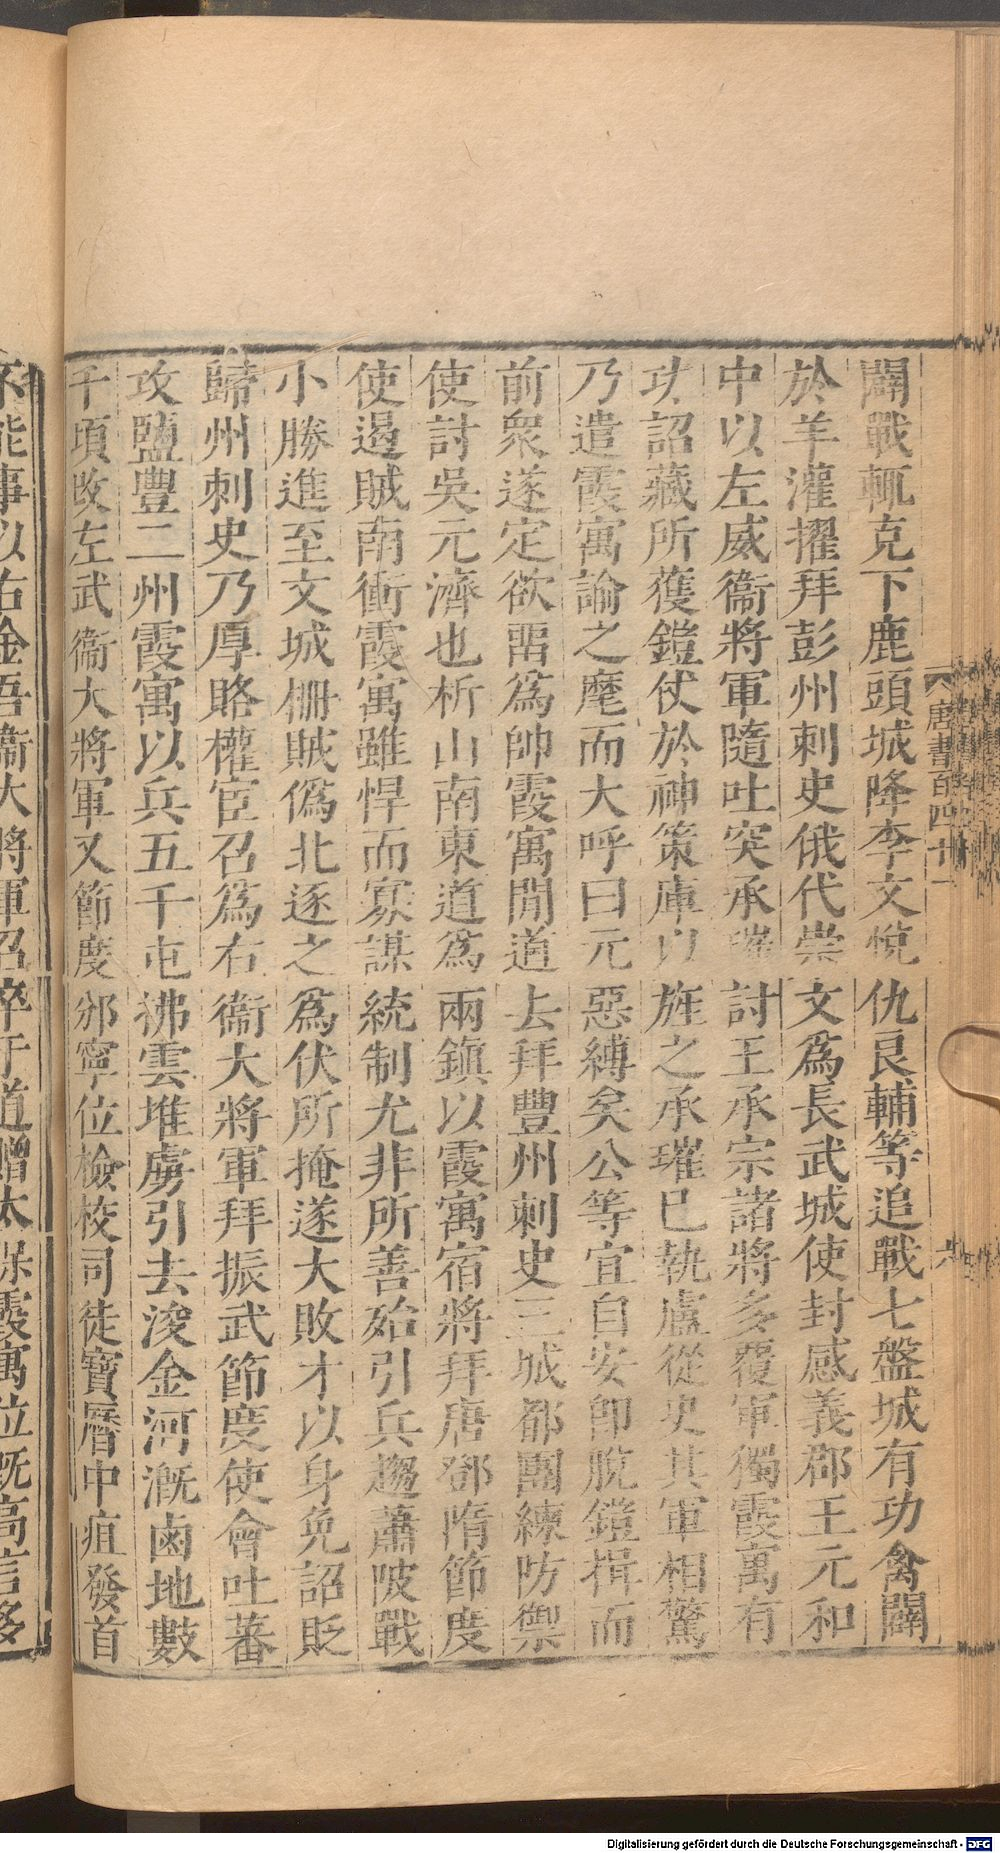 闢戰輒克下鹿頭城降李文悅仇良輔等追戰七盤城有功禽闢
於羊灌擢拜彭州刺史俄代崇文爲長武城使封感義郡王元和
中以左威衞將軍隨吐突承璀討王承宗諸將多覆軍獨霞寓有
功詔藏所獲鎧仗於神策庫以旌之承璀已執盧從史其軍相驚
乃遣霞寓諭之麾而大呼曰元惡縛矣公等宜自安卽脫鎧揖而
前衆遂定欲畱爲帥霞寓閒道去拜豐州刺史三城都團練防禦
使討吳元濟也析山南東道爲兩鎮以霞寓宿將拜唐鄧隋節度
使遏賊南衝霞寓雖悍而寡謀統制尤非所善始引兵趨蕭陂戰
小勝進至文城柵賊僞北逐之爲伏所掩遂大敗才以身免詔貶
歸州刺史乃厚賂權宦召爲右衞大將軍拜振武節度使會吐蕃
攻鹽豐二州霞寓以兵五千屯拂雲堆虜引去浚金河漑鹵地數
千頃改左武衞大將軍又節度邠寧位檢校司徒寶曆中疽發首
不能事以右金吾衞大將軍召卒于道贈太保霞寓位旣高言多
唐書百四十一
六
Digitalisierung gefördert durch die Deutsche Forschungsgemeinschaft - DFG